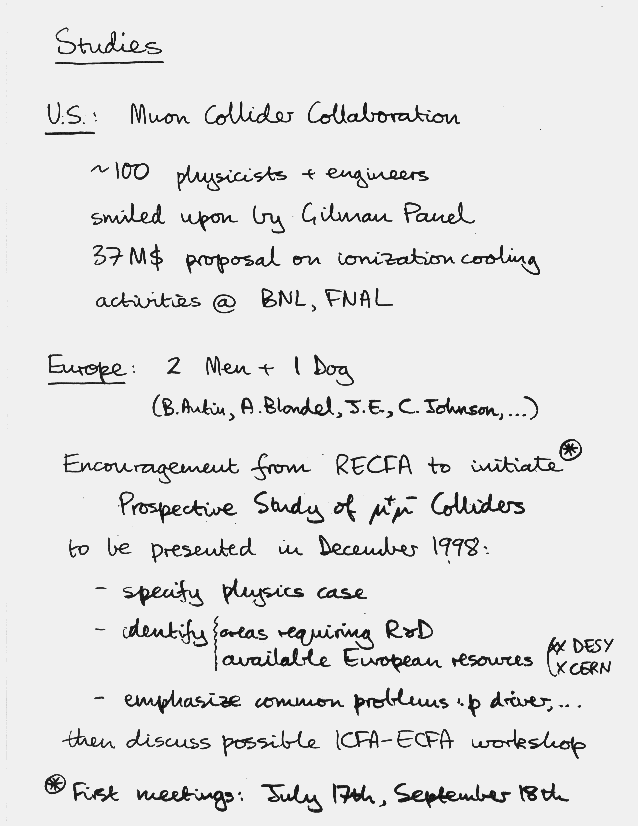 Studies
U.S.: Muon Collider Collaboration
~100 physicists + engineers
smiled upon by Gilman Panel
37 M$ proposal on ionization cooling
activities @ BNL, FNAL
Europe: 2 Men + 1 Dog
(B.Autin, A.Blondel, J.E., C. Johnson, ...)
Encouragement from RECFA to initiate ⊛
Prospective Study of μ⁺μ⁻ Colliders
to be presented in December 1998:
- specify physics case
- identify { areas requiring R&D
available European resources (xx DESY
x CERN
- emphasize common problems : p driver, ...
then discuss possible ICFA-ECFA workshop
⊛ First meetings: July 17th, September 18th